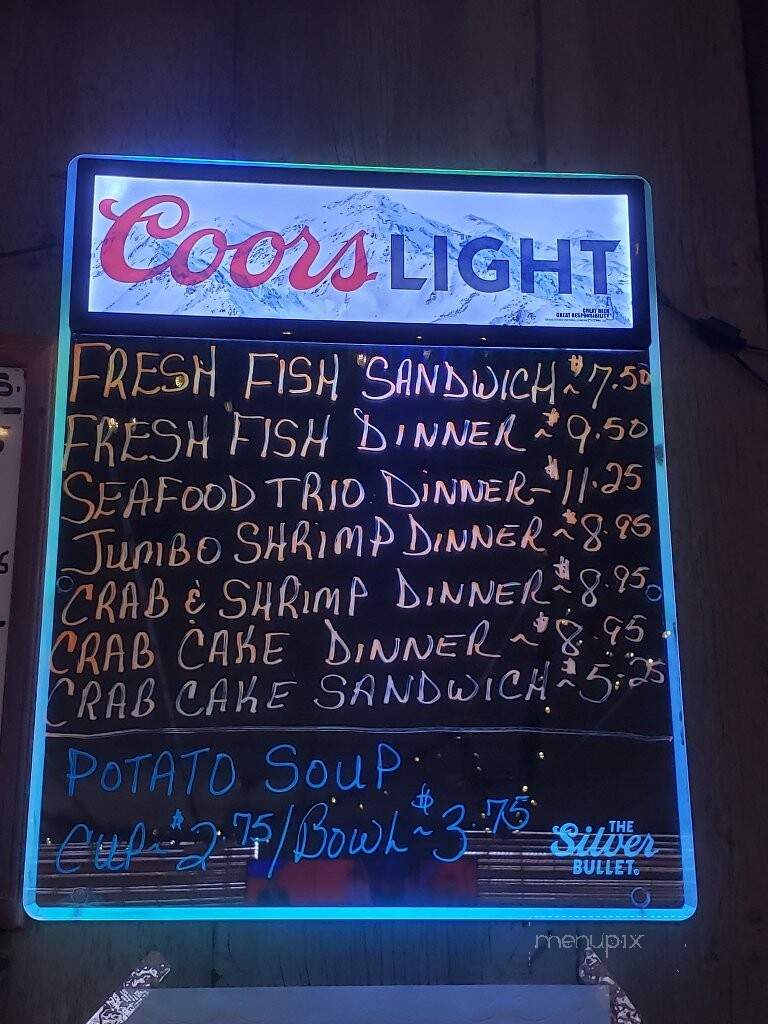 Coors LIGHT
GREAT BEER
GREAT RESPONSIBILITY
FRESH FISH SANDWICH ~ $7.50
FRESH FISH DINNER ~ $9.50
SEAFOOD TRIO DINNER ~ $11.25
JUMBO SHRIMP DINNER ~ $8.95
CRAB & SHRIMP DINNER ~ $8.95
CRAB CAKE DINNER ~ $8.95
CRAB CAKE SANDWICH ~ $5.25
POTATO SOUP
CUP ~ $2.75 / BOWL ~ $3.75
THE
Silver
BULLET.
menupix